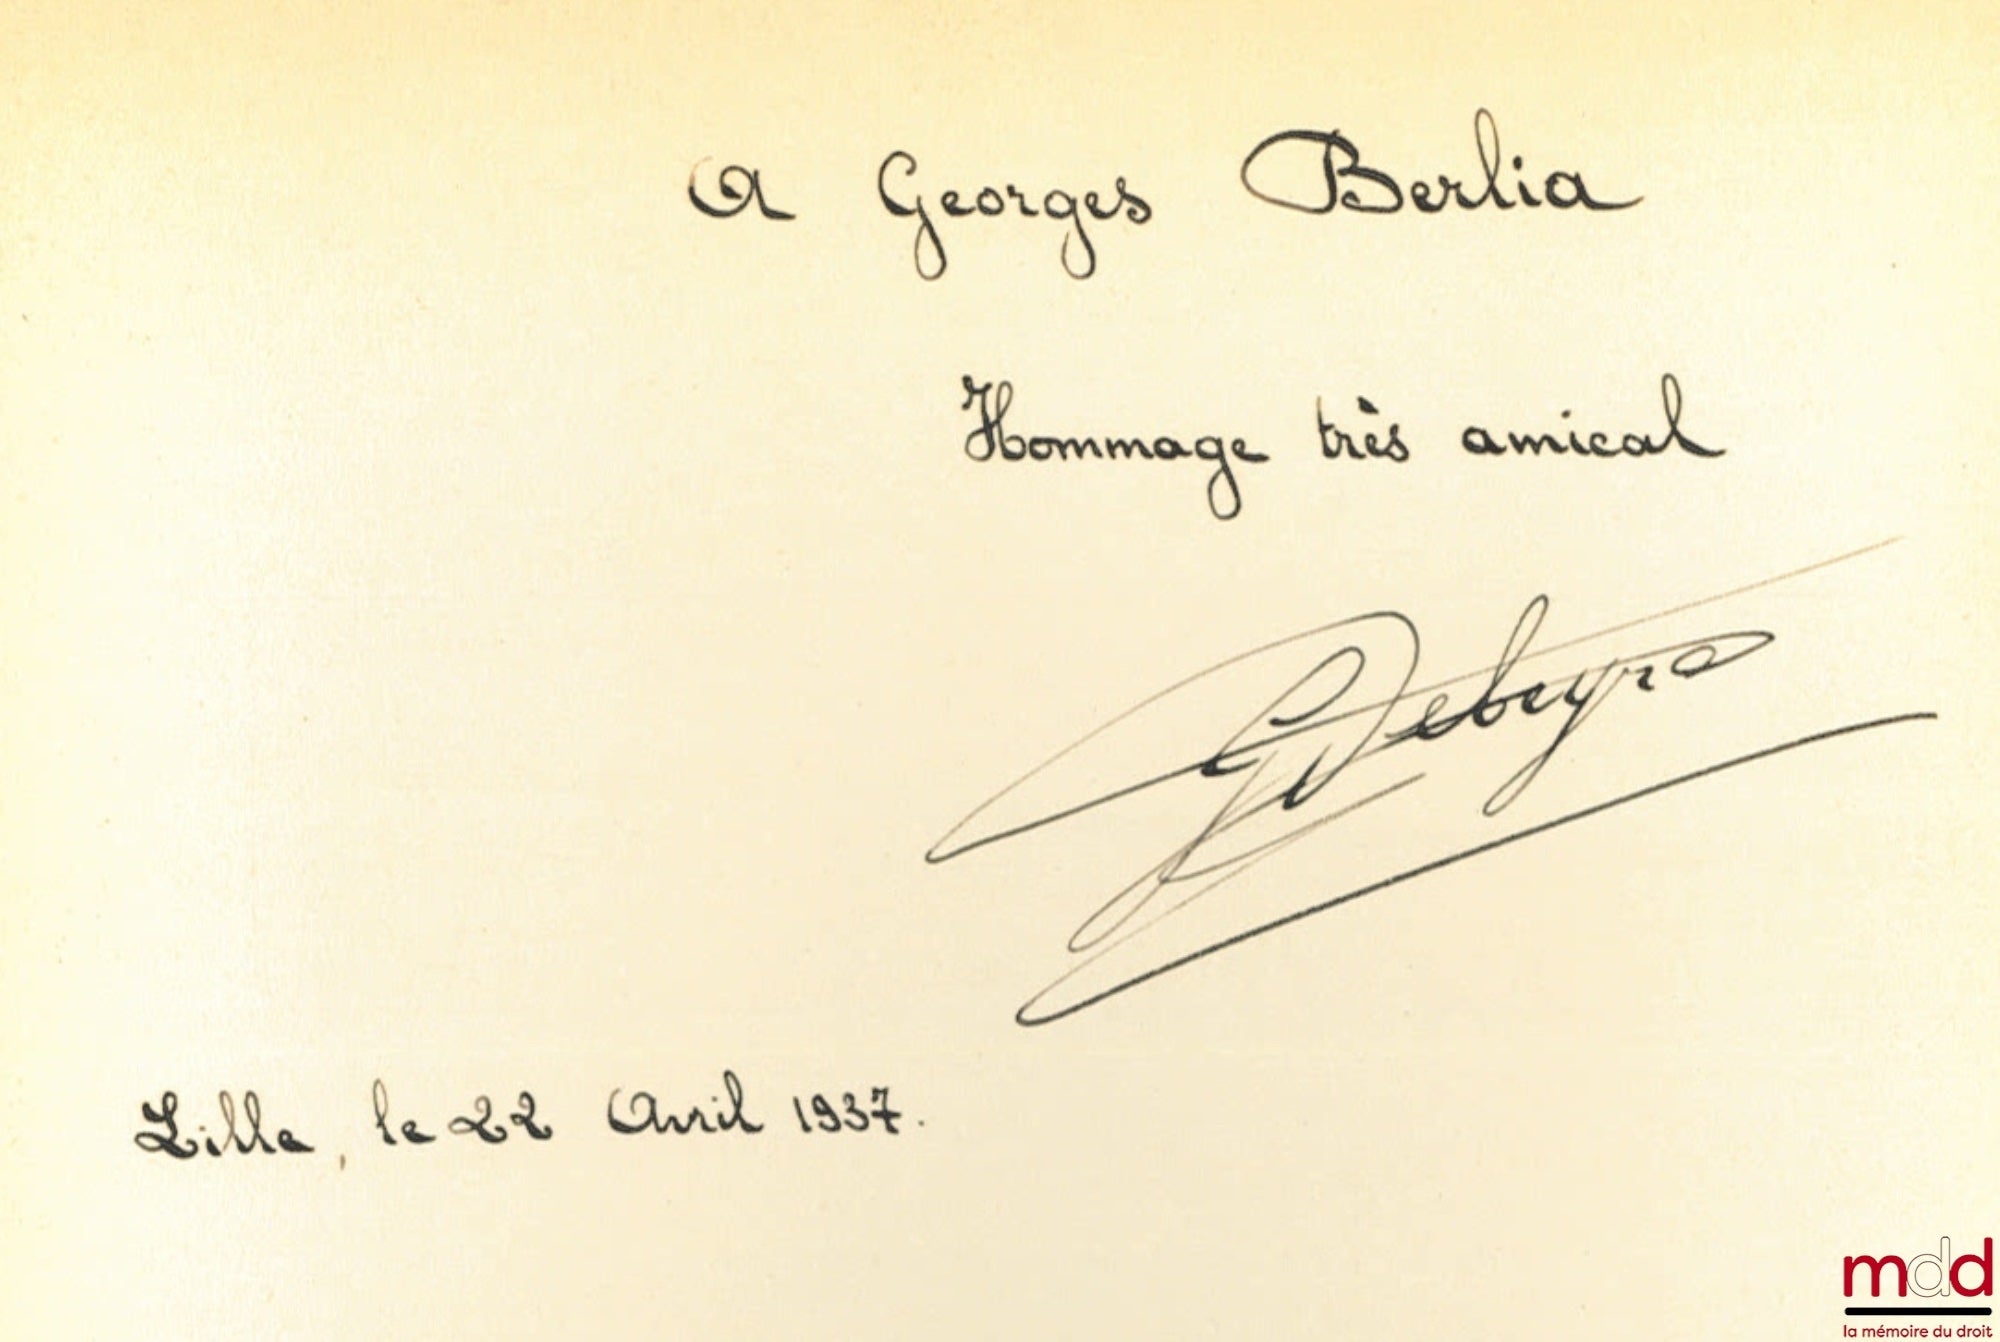 A Georges Berlia
Hommage très amical
G Debeyre
Lille, le 22 Avril 1937.
mdd
la mémoire du droit